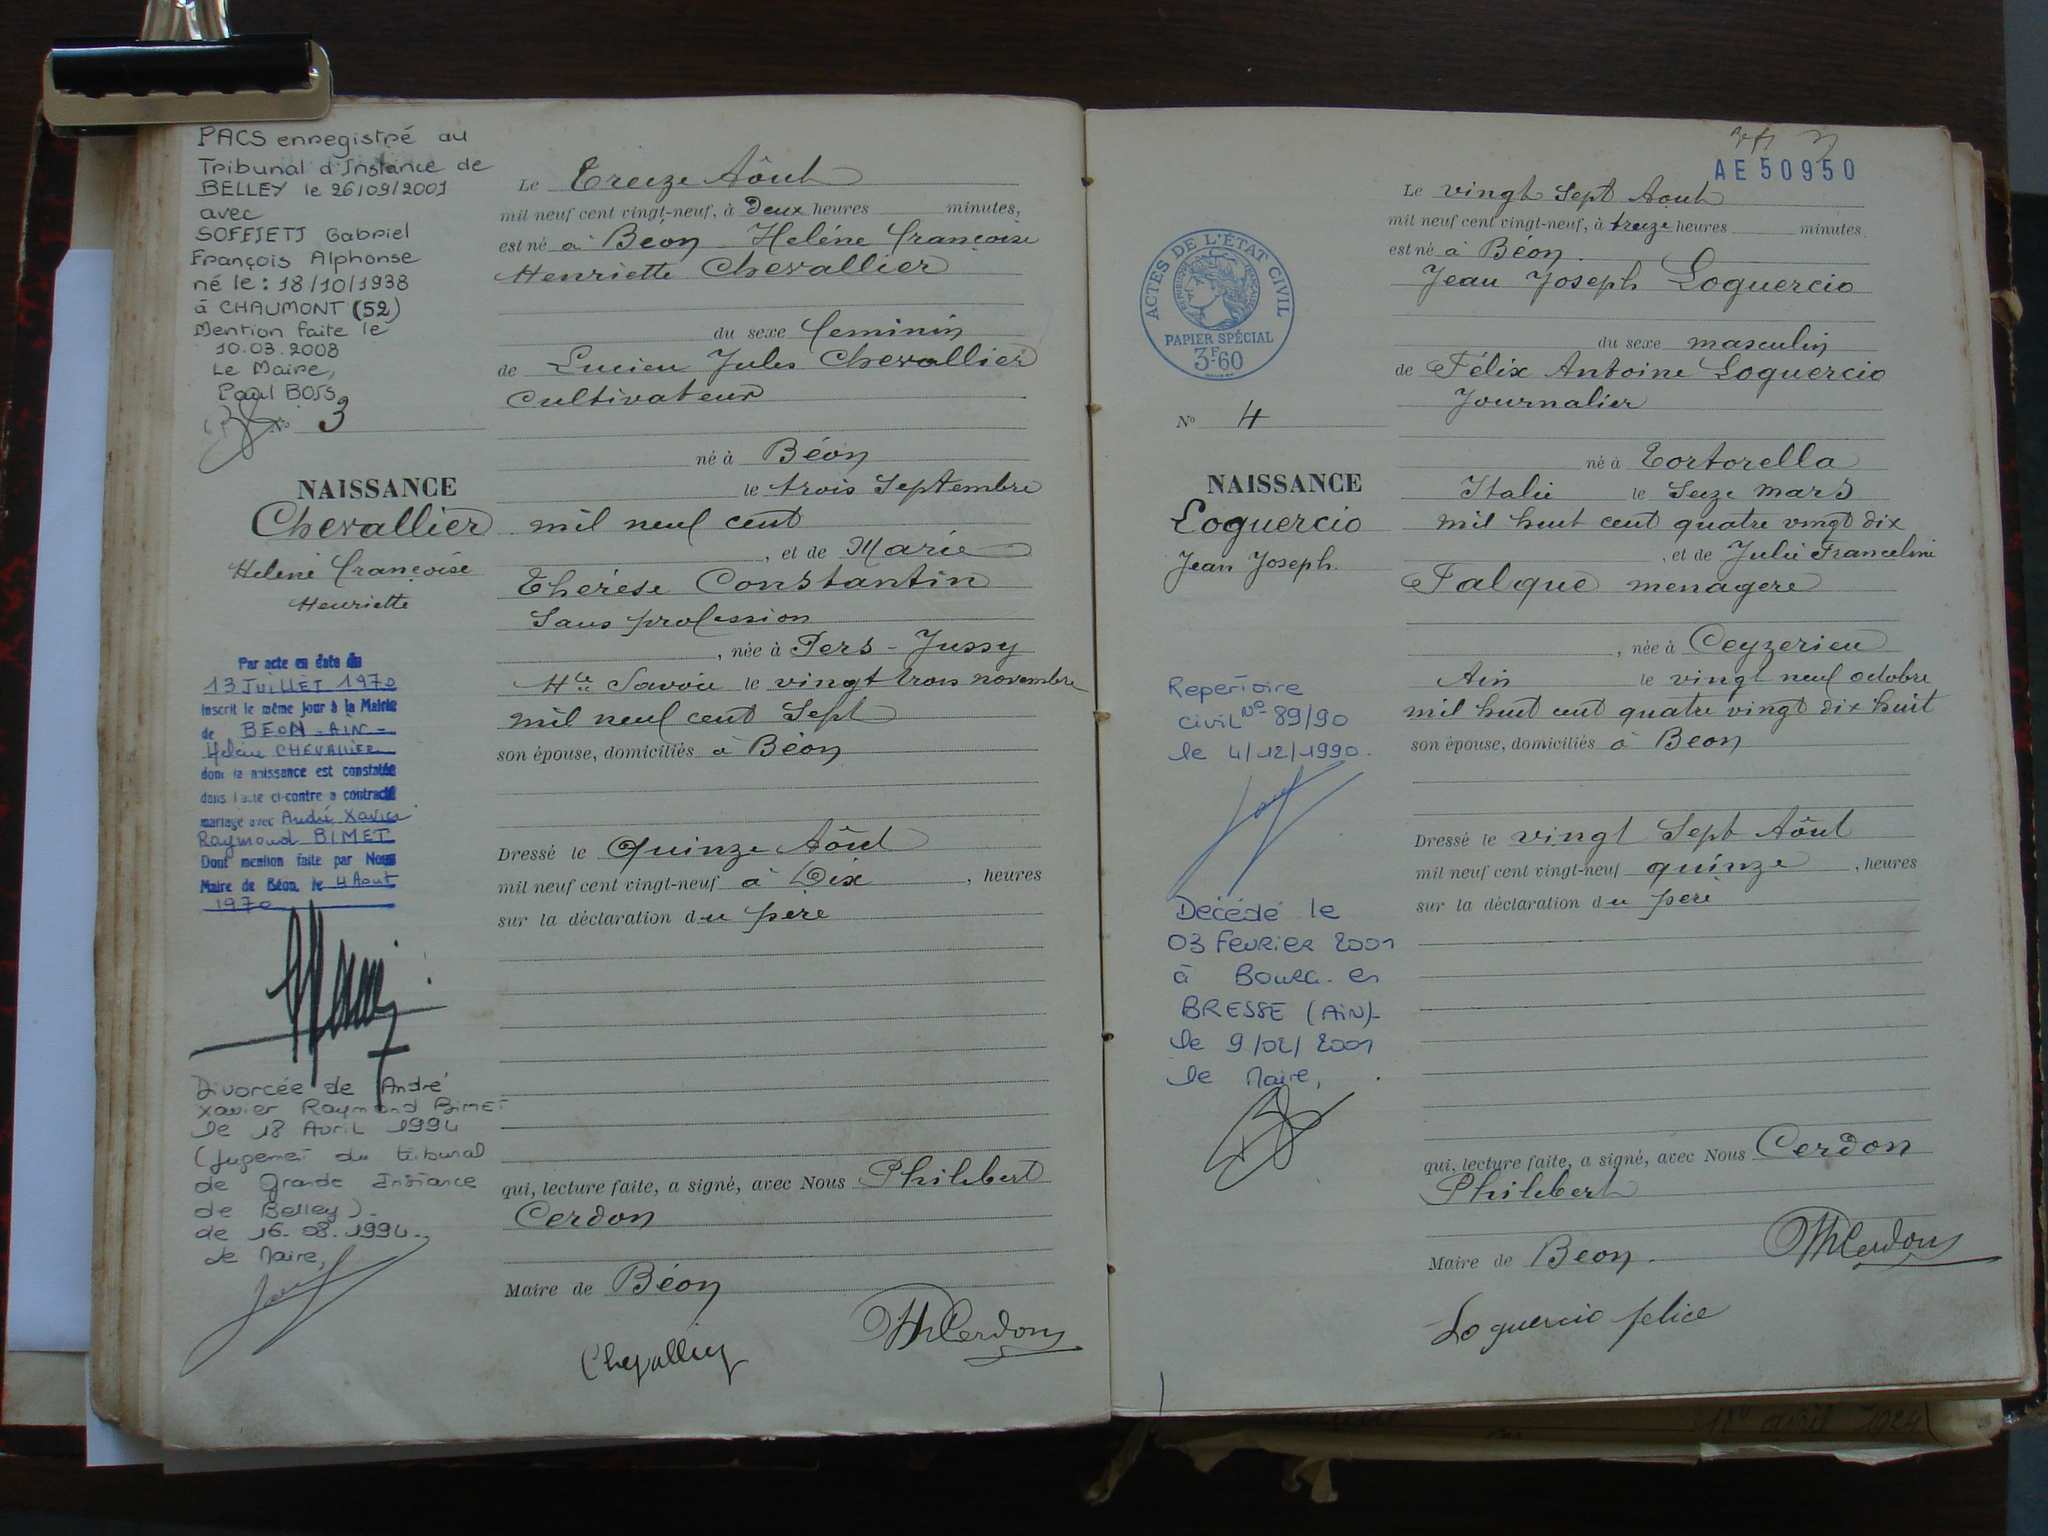 PACS enregistré au
Tribunal d'Instance de
BELLEY le 26/09/2001
avec
SOFFIETI Gabriel
François Alphonse
né le : 18/10/1938
à CHAUMONT (52)
Mention faite le
10.03.2008
Le Maire,
Paul BOSS
No 3
NAISSANCE
Chevallier
Heléne Françoise
Henriette
Par acte en date du
13 JUILLET 1970
inscrit le même jour à la Mairie
de BÉON - AIN -
Hélène CHEVALLIER
dont la naissance est constatée
dans l'acte ci-contre a contracté
mariage avec André Xavier
Raymond BIMET
Dont mention faite par Nous
Maire de Béon, le 4 Aout
1970
Divorcée de André
Xavier Raymond BIMET
le 18 Avril 1994
(jugement du tribunal
de Grande Instance
de Belley).
de 16.08.1994.
Le Maire,
Le Treize Aôut
mil neuf cent vingt-neuf, à Deux heures minutes,
est né à Béon Heléne Françoise
Henriette Chevallier
du sexe feminin
de Lucien Jules Chevallier
Cultivateur
né à Béon
le trois Septembre
mil neuf cent
, et de Marie
Thérèse Constantin
Sans profession
, née à Pers-Jussy
Hte Savoie le vingt trois novembre
mil neuf cent Sept
son épouse, domiciliés à Béon
Dressé le Quinze Aôut
mil neuf cent vingt-neuf à Dix , heures
sur la déclaration du pere
qui, lecture faite, a signé, avec Nous Philibert
Cerdon
Maire de Béon
Chevallier
PhCerdon
AE 50950
ACTES DE L'ÉTAT CIVIL
PAPIER SPÉCIAL
3F60
No 4
NAISSANCE
Loguercio
Jean Joseph
Repertoire
civil No 89/90
le 4/12/1990.
Décédé le
03 Fevrier 2001
à Bourg-en
BRESSE (AiN)-
le 9/02/2001
le Maire,
Le vingt Sept Aout
mil neuf cent vingt-neuf, à treize heures minutes
est né à Béon
Jean Joseph Loguercio
du sexe masculin
de Félix Antoine Loguercio
Journalier
né à Tortorella
Italie le Seize mars
mil huit cent quatre vingt dix
, et de Julie Franceline
Falque menagere
, née à Ceyzerieu
Ain le vingt neuf octobre
mil huit cent quatre vingt dix huit
son épouse, domiciliés à Béon
Dressé le vingt Sept Aôut
mil neuf cent vingt-neuf quinze , heures
sur la déclaration du pere
qui, lecture faite, a signé, avec Nous Cerdon
Philibert
Maire de Béon.
PhCerdon
Loguercio felice
avril 1924